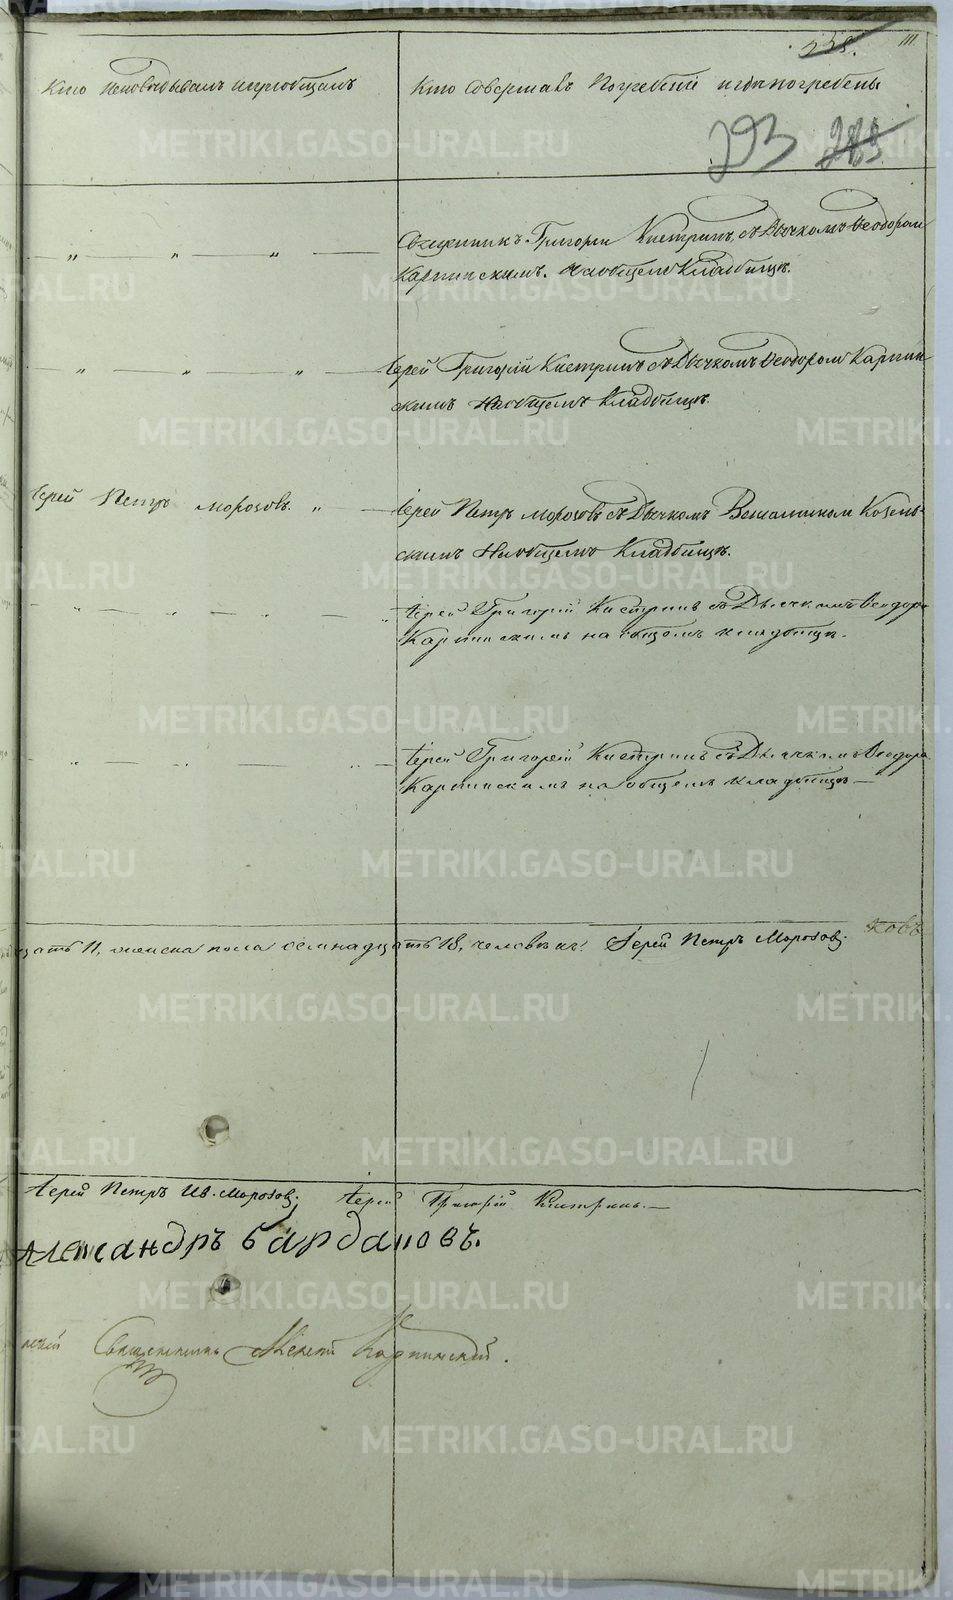 228. 111
Кто исповѣдывалъ и пріобщалъ
Кто Совершалъ Погребеніе и гдѣ погребены
293 283
Священникъ Григорій Кистринъ, съ Дьячкомъ Ѳеодоромъ
Карпинскимъ. На общемъ Кладбищѣ.
Іерей Григорій Кистринъ съ Дьячкомъ Ѳеодоромъ Карпин
скимъ На общемъ Кладбищѣ.
Іерей Петръ Морозовъ.
Іерей Петръ Морозовъ съ Дьячкомъ Веніаминомъ Козель-
скимъ На общемъ Кладбищѣ.
Іерей Григорій Кистринъ съ Дьячкомъ Ѳеодоро
Карпинскимъ на общемъ кладбищѣ.
Іерей Григорій Кистринъ съ Дьячкомъ Ѳеодоро
Карпинскимъ на общемъ кладбищѣ
цать 11, женска пола семнадцать 18, человѣкъ. Іерей Петръ Морозовъ.
ковъ
Іерей Петръ Ив. Морозовъ; Іерей Григорій Кистринъ.
Александръ Бардановъ.
Священникъ Карпинскій.
METRIKI.GASO-URAL.RU